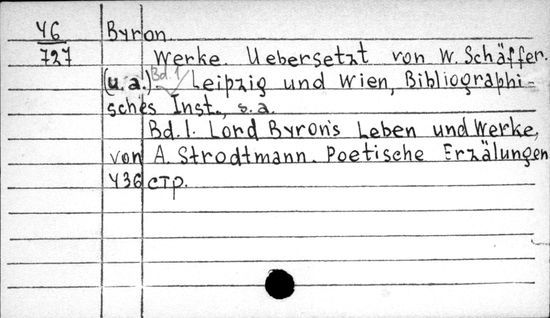 У6 Byron.
727 Werke. Uebersetzt von W. Schäffer.
(u.a.). Bd. 1 Leipzig und Wien, Bibliographi-
sches Inst., s.a.
Bd. 1. Lord Byron's Leben und Werke,
von A. Strodtmann. Poetische Erzälungen
436 стр.